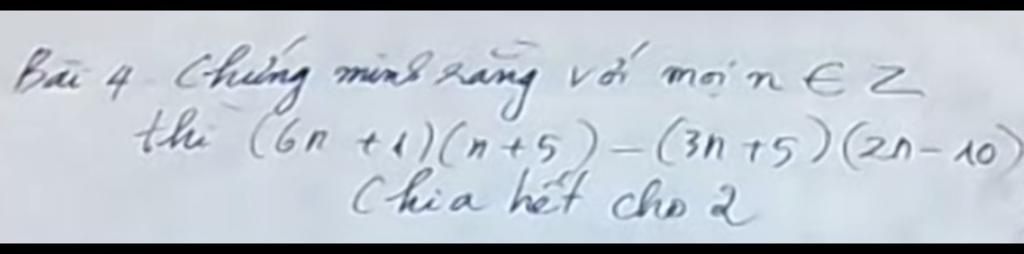 Bài 4. Chứng minh rằng với mọi n ∈ Z
thì (6n + 1)(n + 5) - (3n + 5)(2n - 10)
Chia hết cho 2